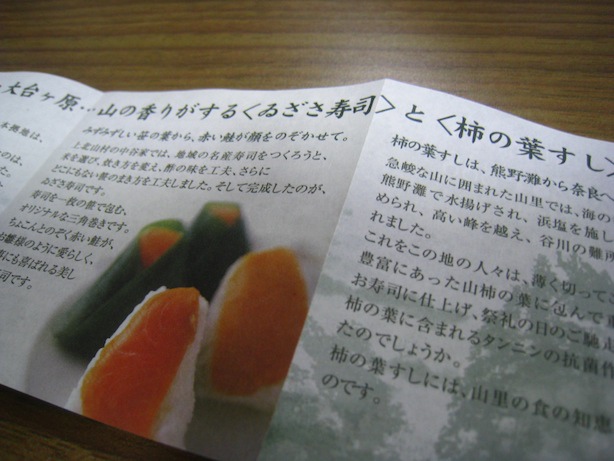 大台ヶ原…山の香りがする〈ゐざさ寿司〉と〈柿の葉すし
本拠地は、
のは、
みずみずしい笹の葉から、赤い鮭が顔をのぞかせて。
上北山村の中谷家では、地域の名産寿司をつくろうと、
米を選び、炊き方を変え、酢の味を工夫、さらに
どこにもない鮭のまき方を工夫しました。そして完成したのが、
ゐざさ寿司です。
寿司を一枚の鮭で包む、
オリジナルな三角巻きです。
ちょこんとのぞく赤い鮭が、
お雛様のように愛らしく、
にも喜ばれる美し
司です。
柿の葉すしは、熊野灘から奈良へ
急峻な山に囲まれた山里では、海の
熊野灘で水揚げされ、浜塩を施し
められ、高い峰を越え、谷川の難所
れました。
これをこの地の人々は、薄く切って
豊富にあった山柿の葉に包んで
お寿司に仕上げ、祭礼の日のご馳走
柿の葉に含まれるタンニンの抗菌作
たのでしょうか。
柿の葉すしには、山里の食の知恵
のです。